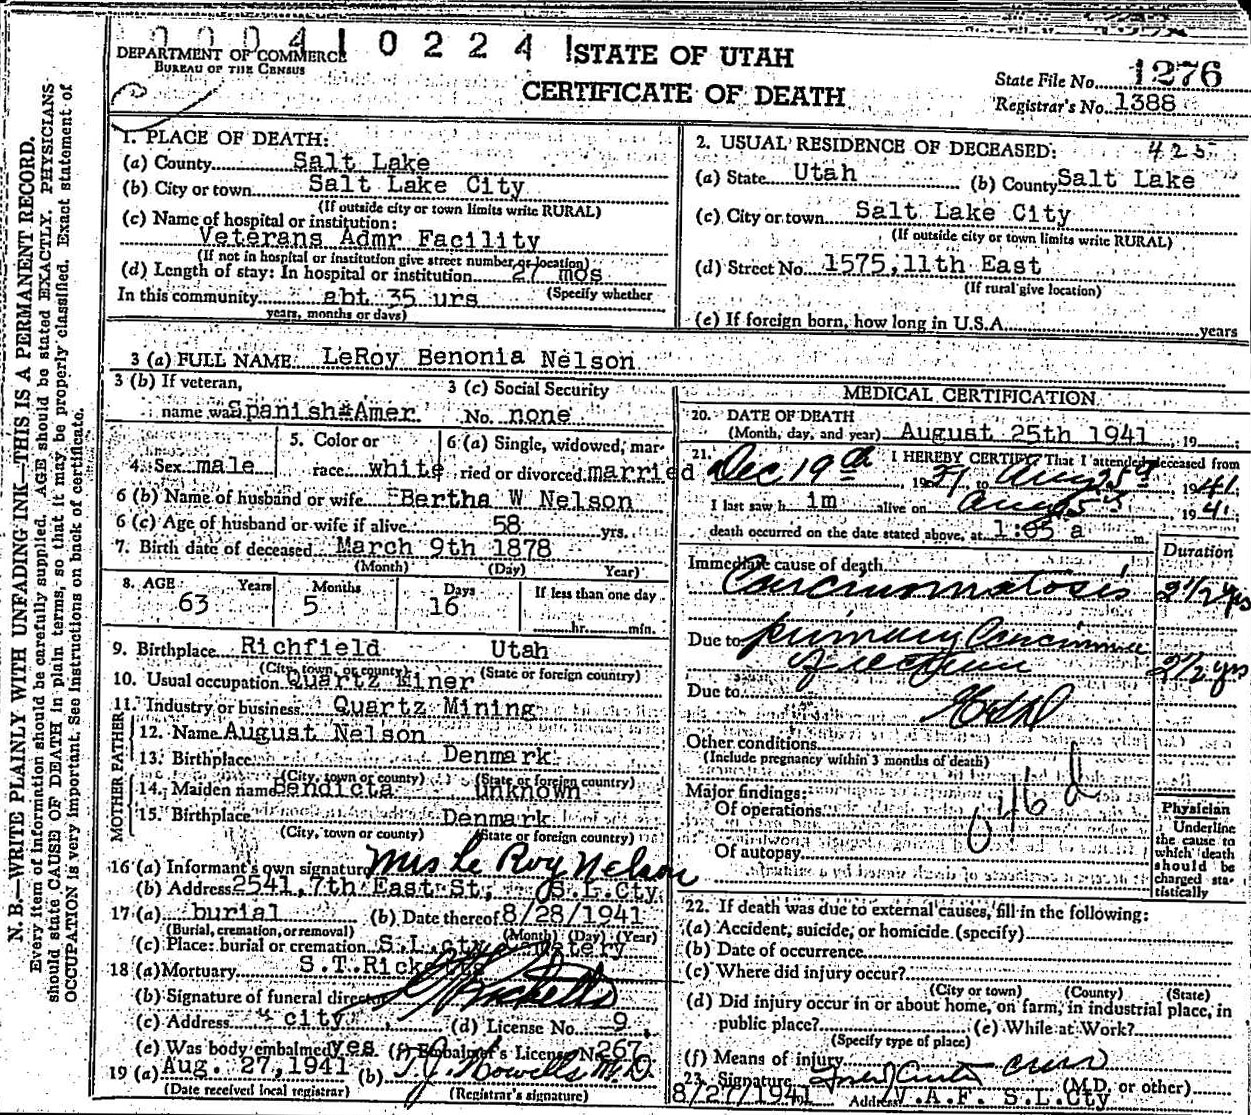 000410224
DEPARTMENT OF COMMERCE
BUREAU OF THE CENSUS
STATE OF UTAH
CERTIFICATE OF DEATH
State File No. 1276
Registrar's No. 1388
N. B.—WRITE PLAINLY WITH UNFADING INK—THIS IS A PERMANENT RECORD.
Every item of information should be carefully supplied. AGE should be stated EXACTLY. PHYSICIANS
should state CAUSE OF DEATH in plain terms, so that it may be properly classified. Exact statement of
OCCUPATION is very important. See Instructions on back of certificate.
1. PLACE OF DEATH:
(a) County Salt Lake
(b) City or town Salt Lake City
(If outside city or town limits write RURAL)
(c) Name of hospital or institution:
Veterans Admr Facility
(If not in hospital or institution give street number or location)
(d) Length of stay: In hospital or institution 27 mos
In this community abt 35 urs (Specify whether
years, months or days)
2. USUAL RESIDENCE OF DECEASED: 425
(a) State Utah (b) County Salt Lake
(c) City or town Salt Lake City
(If outside city or town limits write RURAL)
(d) Street No. 1575, 11th East
(If rural give location)
(e) If foreign born, how long in U.S.A. years
3 (a) FULL NAME LeRoy Benonia Nelson
3 (b) If veteran,
name war Spanish#Amer
3 (c) Social Security
No. none
4. Sex male
5. Color or
race white
6 (a) Single, widowed, mar-
ried or divorced married
6 (b) Name of husband or wife Bertha W Nelson
6 (c) Age of husband or wife if alive 58 yrs.
7. Birth date of deceased March 9th 1878
(Month) (Day) Year)
8. AGE Years Months Days If less than one day
63 5 16
hr. min.
9. Birthplace Richfield Utah
(City, town, or county) (State or foreign country)
10. Usual occupation Quartz Miner
11. Industry or business Quartz Mining
FATHER
12. Name August Nelson
13. Birthplace Denmark
(City, town or county) (State or foreign country)
MOTHER
14. Maiden name Bendicta unknown
15. Birthplace Denmark
(City, town or county) (State or foreign country)
16 (a) Informant's own signature Mrs Le Roy Nelson
(b) Address 2541, 7th East St, S.L.Cty.
17 (a) burial (b) Date thereof 8/28/1941
(Burial, cremation, or removal) (Month) (Day) (Year)
(c) Place: burial or cremation S.L.cty cemetery
18 (a) Mortuary S.T.Ricketts
(b) Signature of funeral director Ricketts
(c) Address city (d) License No. 9
(e) Was body embalmed yes (f) Embalmer's License No. 267
19 (a) Aug. 27, 1941 (b) T.J. Howells M.D.
(Date received local registrar) (Registrar's signature)
MEDICAL CERTIFICATION
20. DATE OF DEATH
(Month, day, and year) August 25th 1941 19
21. I HEREBY CERTIFY That I attended deceased from
Dec 19th 1939 to Aug 25th 1941
I last saw h im alive on Aug 25 1941
death occurred on the date stated above, at 1:05 a m.
Duration
Immediate cause of death
Carcinomatosis 2 1/2 yrs
Due to primary Carcinoma
of rectum 2 1/2 yrs
Due to
Other conditions
(Include pregnancy within 3 months of death)
Major findings:
Of operations
046 d
Of autopsy
Physician
Underline
the cause to
which death
should be
charged sta-
tistically
22. If death was due to external causes, fill in the following:
(a) Accident, suicide, or homicide (specify)
(b) Date of occurrence
(c) Where did injury occur?
(City or town) (County) (State)
(d) Did injury occur in or about home, on farm, in industrial place, in
public place? (e) While at Work?
(Specify type of place)
(f) Means of injury
23. Signature (M.D. or other)
8/27/1941 Address V.A.F. S.L.Cty